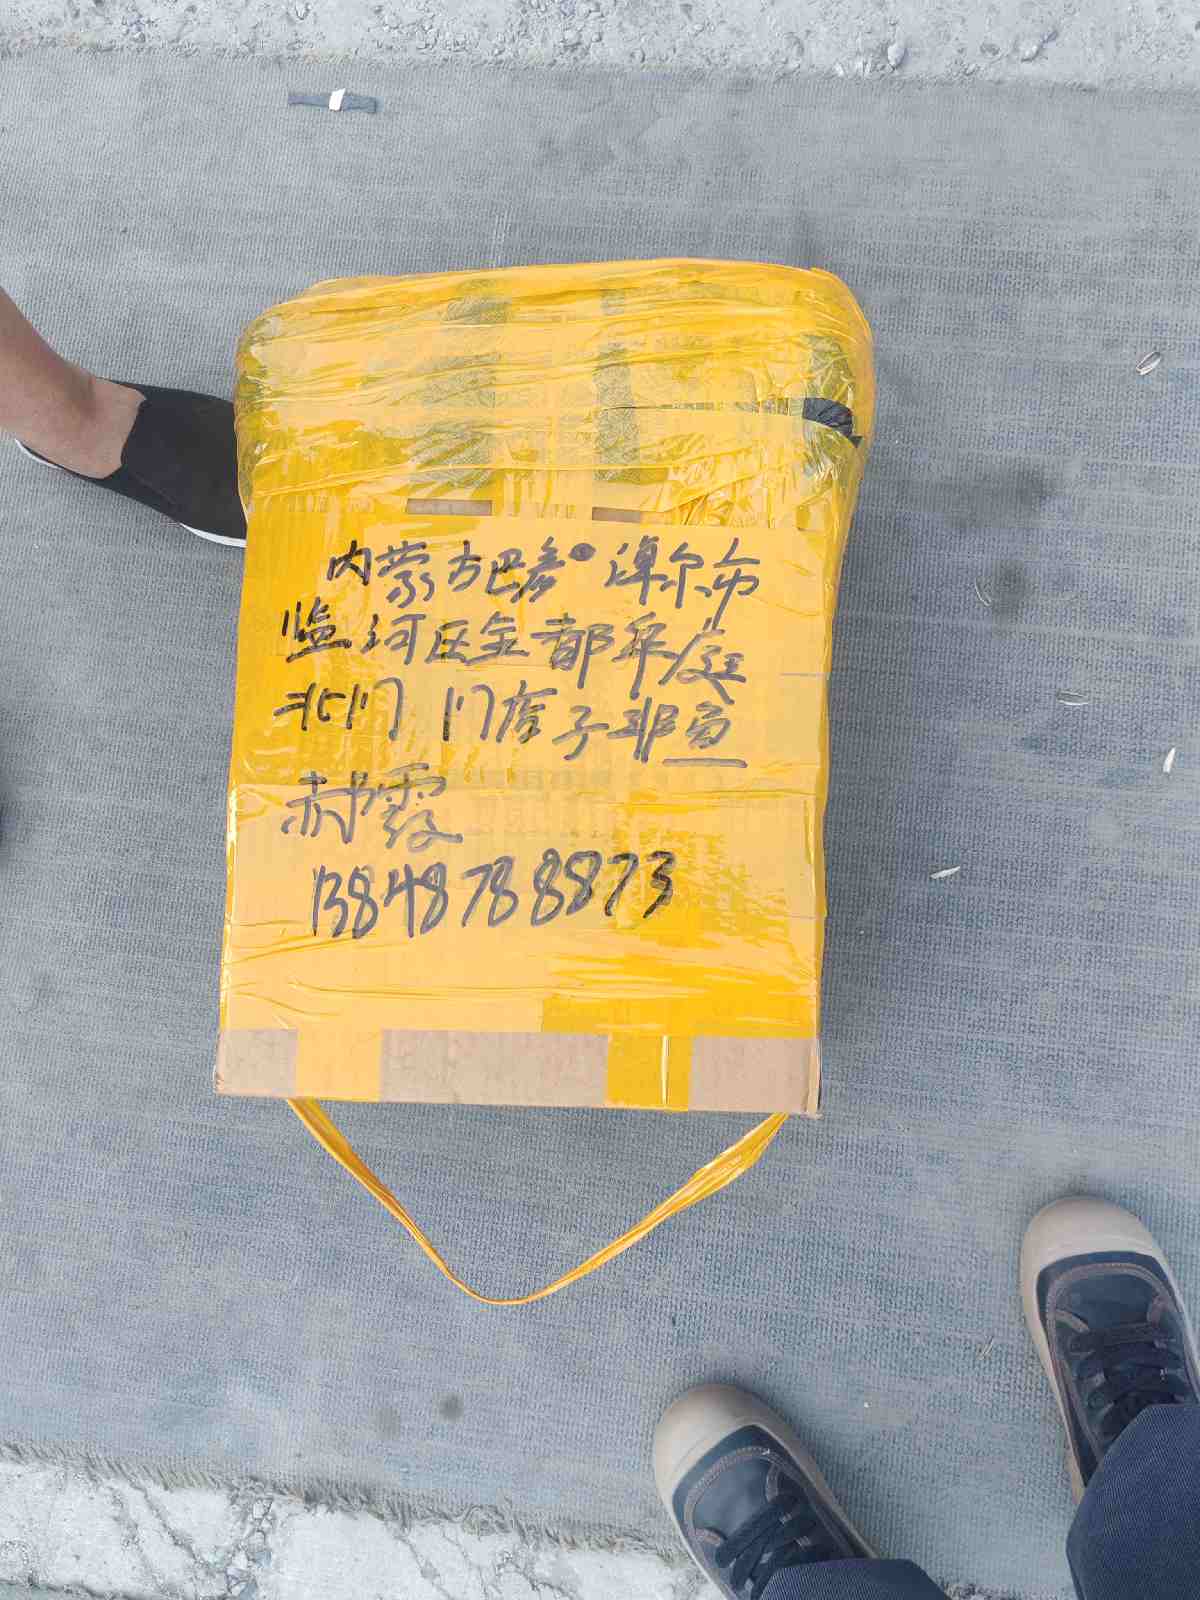 内蒙古巴彦淖尔市
监河区金都华庭
北门 门房子非鱼
郝霞
13848788873